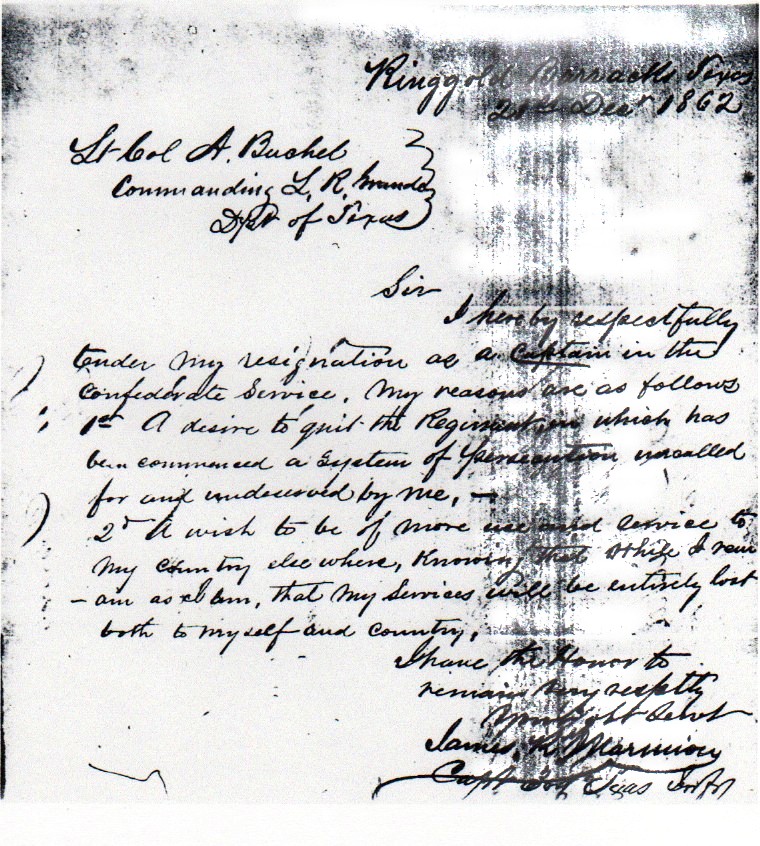 Ringgold Barracks Texas
Decr 1862
Lt Col A. Buchel
Commanding L. R. Grande
Dpt of Texas
Sir
I hereby respectfully
tender my resignation as a Captain in the
Confederate Service. My reasons are as follows
1st A desire to quit the Regiment in which has
been commenced a System of Persecution uncalled
for and undeserved by me. —
2d A wish to be of more use and Service to
my country elsewhere, Knowing that while I rem
- ain as I am, that my Services will be entirely lost
both to myself and country.
I have the Honor to
remain Very respttly
Your obt Servt
James, K Marmion
Capt Texas